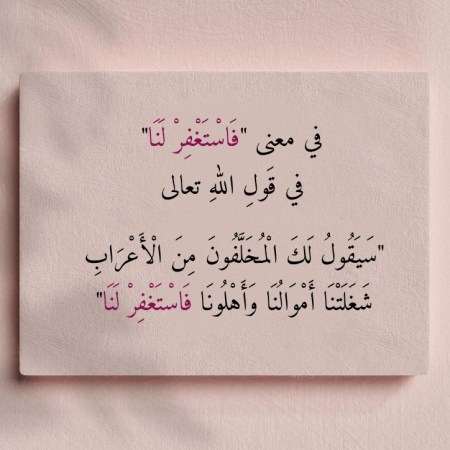 في معنى "فَاسْتَغْفِرْ لَنَا"
في قَولِ اللهِ تعالى
"سَيَقُولُ لَكَ الْمُخَلَّفُونَ مِنَ الْأَعْرَابِ
شَغَلَتْنَا أَمْوَالُنَا وَأَهْلُونَا فَاسْتَغْفِرْ لَنَا"